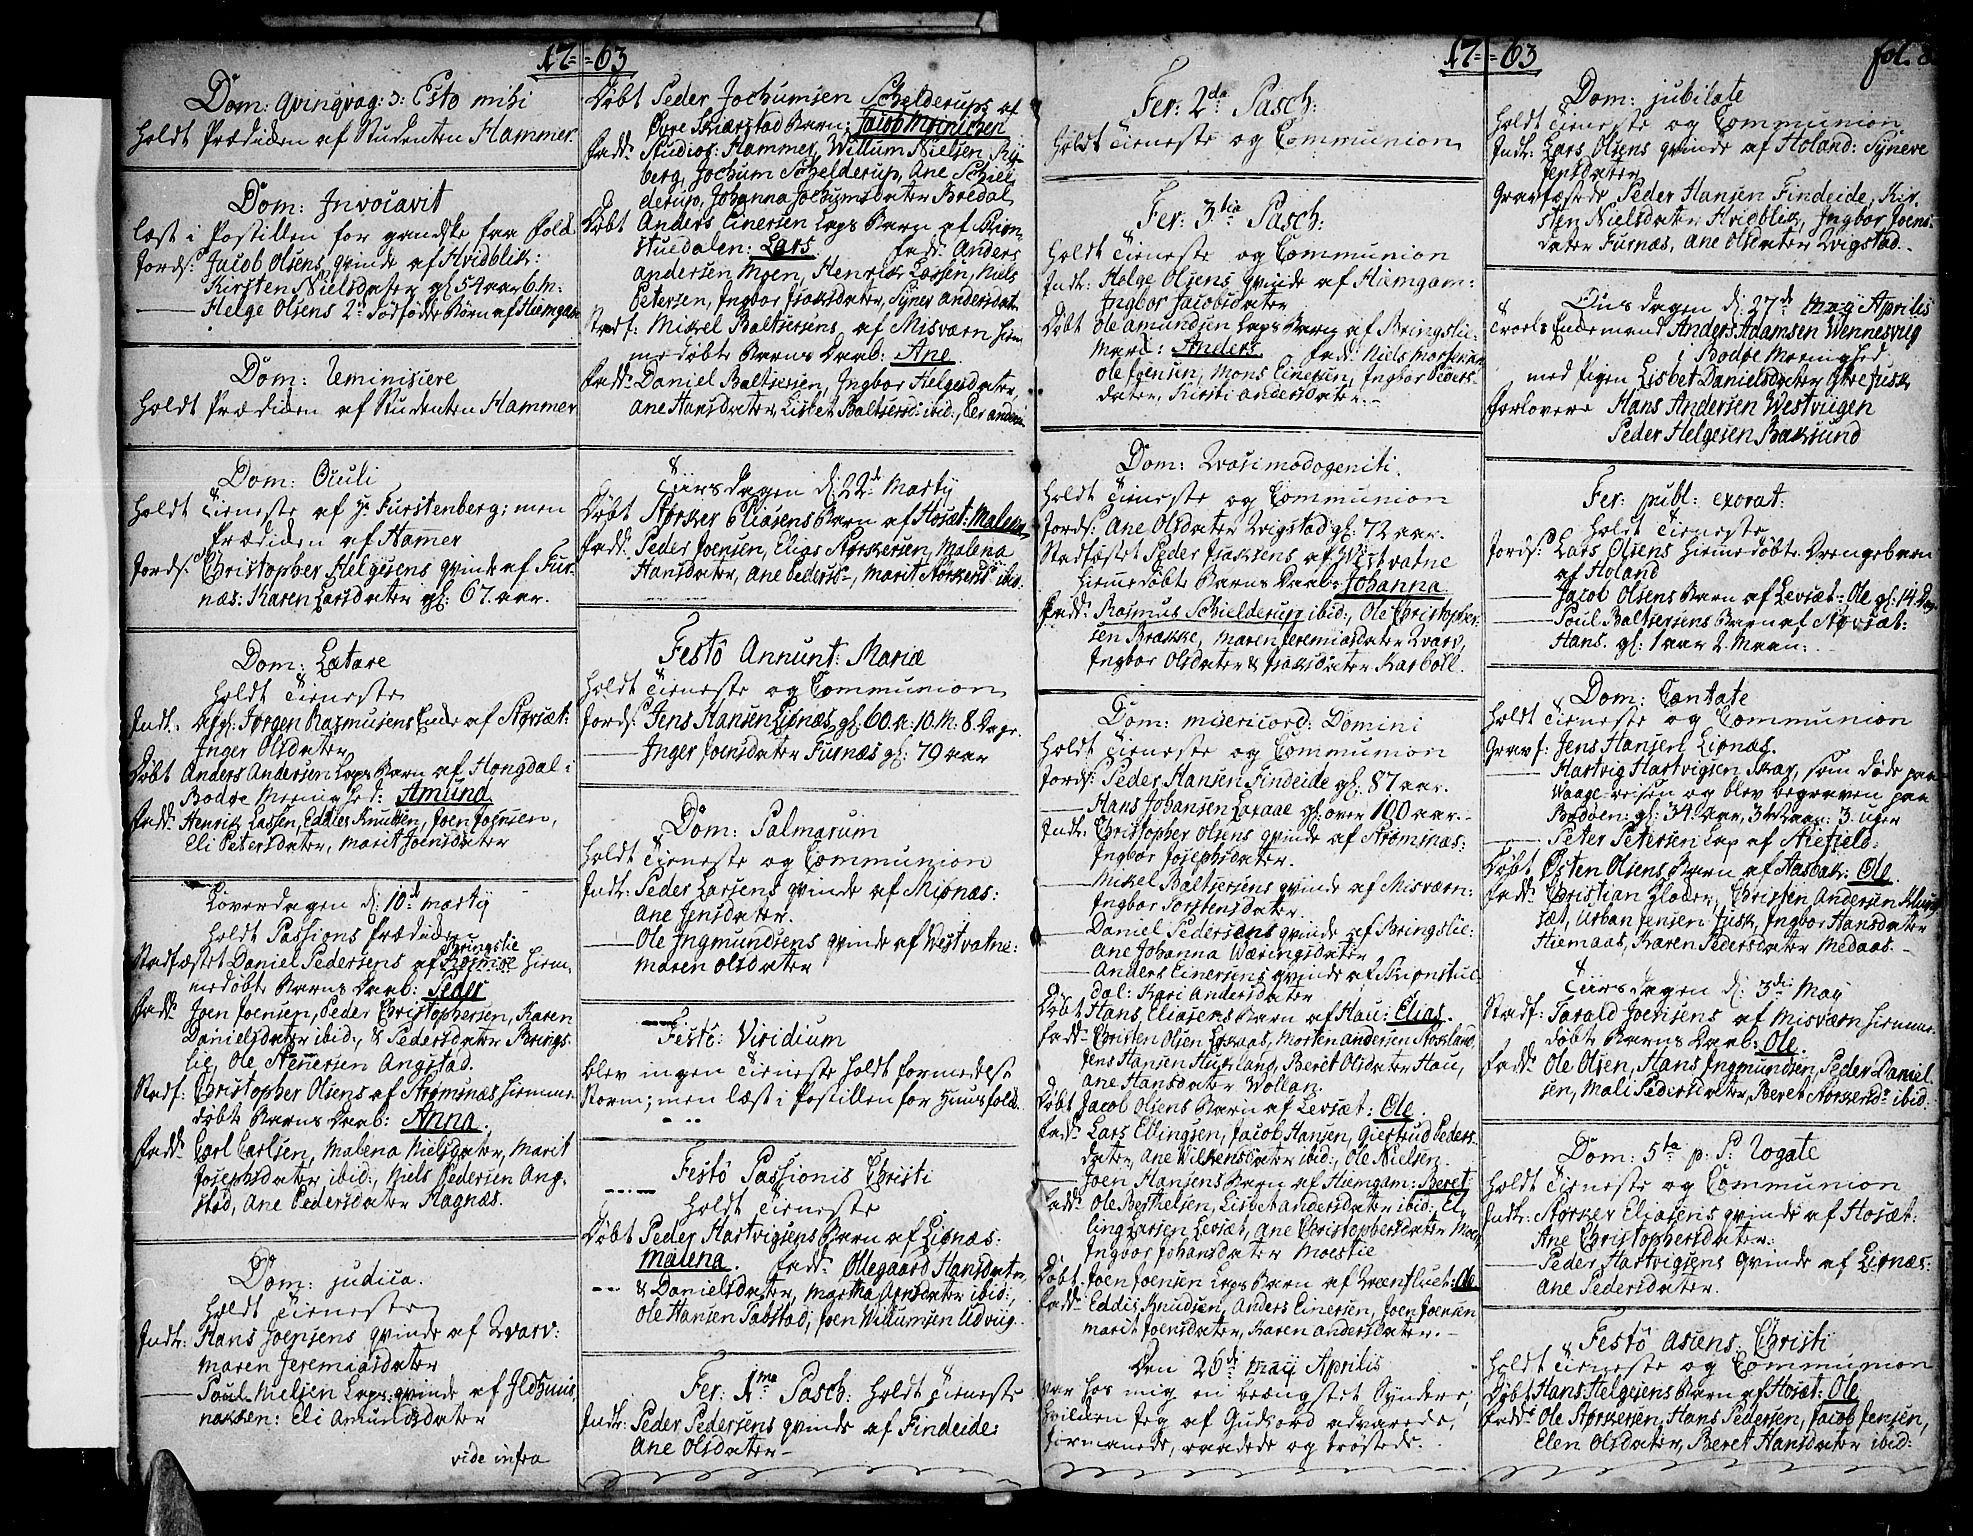 17=63
Dom: Qvingvag: ɔ: Esto mihi
holdt Prædiken af Studenten Hammer.
Dom: Invocavit
læst i Postillen for
Jords: Jacob Olsens qvinde af Hvidblik:
Kirsten Nielsdater gl: 54 aar 6. m:
Helge Olsens 2de dødfødde Børn af Hiemgam
Dom: Reminiscere
holdt Prædiken af Studenten Hammer
Dom: Oculi
holdt Tieneste af Hr Furstenberg; men
Prædiken af Hamer
Jords: Christopher Helgesens qvinde af Fur-
næs: Karen Larsdater gl: 67. aar.
Dom: Lætare
holdt Tieneste
Indt: Afgl: Jørgen Rasmusens Enke af Størsæt:
Inger Olsdater
Døbt Anders Andersen Laps Barn af Hongdal i
Bodøe Menighed: Amund
Fadd: Henrik Lassen, Eddies Knudsen, Joen Joensen,
Eli Petersdater, Marit Joensdater
Løverdagen d: 10de Martij
holdt Passions Prædiken
Bringslie
Stadfæstet Daniel Pedersens af hiem-
medøbte Barns Daab: Peder
Fadd: Joen Joensen, Peder Christophersen, Karen
Danielsdater ibid:, & Pedersdater Brings-
lie, Ole Steensen Angstad.
Stadf: Christopher Olsens af Strømsnæs hiemme-
døbt Barns Daab: Anna.
Fadd: Carl Carlsen, Malena Nielsdater, Marit
Josephsdater ibid:, Niels Pedersen Ang-
stad, Ane Pedersdater Hagnæs.
Dom: judica.
holdt Tieneste
Indt: Hans Joensens qvinde af Qvarv:
Maren Jeremiasdater
Poul Nielsen Laps qvinde af Ildhuus
nakken: Eli Amundsdater
vide infra
Døbt Peder Jochumsen Schelderups af
Øvre Skierstad Barn: Jacob Meinichen
Fadd: Studios: Hammer, Willum Nielsen Ry-
berg, Jochum Schelderup, Ane Schel-
derup, Johanna Jochumsdater Bredal
Døbt Anders Einersen Laps Barn af Brion-
stuedalen: Lars. Fad: Anders
Andersen Moen, Henrik Lassen, Niels
Petersen, Ingbor Isaksdater, Syner Andersdat.
Stadf: Mikel Baltsersens af Misværn hiem
medøbte Barns Daab: Ane.
Fadd: Daniel Baltsersen, Ingbor Helgesdater,
Ane Hansdater, Lisbet Baltsersd: ibid:, Per Andersen
Tiirsdagen d: 22de Martij
Døbt Størker Eliasens Barn af Hosæt: Malena
Fadd: Peder Joensen, Elias Størkersen, Malena
Hansdater, Ane Peders-, Marit Størkersd: ibid.
Festo Annunt: Mariæ
holdt Tieneste og Communion
Jords: Jens Hansen Lionæs, gl: 60. a: 10. M: 8. Dage.
Inger Joensdater Furnæs gl: 79 aar
Dom: Palmarum
holdt Tieneste og Communion
Indt: Peder Larsens qvinde af Mionæs:
Ane Jensdater.
Ole Ingmundsens qvinde af Westvatne:
Maren Olsdater
Festo: Viridium
blev ingen Tieneste holdt formedelst
Storm; men læst i Postillen for Huusfolk
Festo Passionis Christi
holdt Tieneste
Døbt Peder Hartvigsens Barn af Lionæs:
Malena. Fadd: Ollegaard Hansdater,
& Danielsdater, Martha ibid:,
Ole Hansen Tabstad, Joen Willumsen Udviig.
Fer: 1ma Pasch: holdt Tieneste
Indt: Peder Pedersens qvinde af Findeide:
Ane Olsdater-
17=63
Fer: 2da Pasch:
holdt Tieneste og Communion
Fer: 3tia Pasch:
holdt Tieneste og Communion
Indt: Helge Olsens qvinde af Hiemgam:
Ingbor Jacobsdater
Døbt Ole Amundsen Laps Barn af Bringslie-
Mark: Anders. Fad: Niels Mortensen
Ole Joensen, Mons Einersen, Ingbor Peders-
dater, Kirsti Andersdater.-
Dom: Qvasimodogeniti.
holdt Tieneste og Communion
Jords: Ane Olsdater Qvigstad gl: 72 aar.
Stadfæstet Peder Isaksens af Westvatne
hiemmedøbte Barns Daab: Johanna
Fadd: Rasmus Schielderup ibid:, Ole Christopher-
sen Brække, Maren Jeremiasdater Qvarv,
Ingbor Olsdater & Isaksdater Karboll.
Dom: misericord: Domini
holdt Tieneste og Communion
Jords: Peder Hansen Findeide gl: 87 aar.
Hans Johansen gl: over 100 aar.-
Indt: Christopher Olsens qvinde af Strømsnæs:
Ingbor Josephsdater.
Mikel Baltsersens qvinde af Misværn:
Ingbor Torstensdater.
Daniel Pedersens qvinde af Bringslie:
Ane Johanna Wæringsdater
Anders Einersens qvinde af Brionstue-
dal: Kari Andersdater
Døbt Hans Eliasens Barn af Hau: Elias.
Fadd: Christen Olsen, Morten Andersen Stokland,
Jens Hansen Huskland, Beret Olsdater Hau,
Ane Hansdater Wollan.
Døbt Jacob Olsens Barn af Levsæt: Ole.
Fadd: Lars Ellingsen, Jacob Hansen, Giertrud Peders-
dater, Ane Wilkensdater ibid:, Ole Nielsen.
Joen Hansens Barn af Humgam: Beret
Fadd: Ole Berthelsen, Lisbet Andersdater ibid: El-
ling Larsen Levsæt, Ane Christophersdater Moen,
Ingbor Johansdater Moestie
Døbt Joen Joensen Laps Barn af Grænfluet: Ole
Fadd: Eddis Knudsen, Anders Einersen, Joen Joensen
Marit Joensdater, Karen Andersdater.-
Den 26de Maij Aprilis
var hos mig en beængstet Syndere,
hvilken jeg af Guds ord advarede,
formanede, raadede og trøstede.
17=63
fol. 8
Dom: jubilate
holdt Tieneste og Communion
Indt: Lars Olsens qvinde af Holand: Synere
Jensdater
Gravfæstede Peder Hansen Findeide, Kir-
sten Nielsdater Hvidblik, Ingbor Joens-
dater Furnæs, Ane Olsdater Qvigstad.-
Tiirsdagen d: 27de Maij Aprilis
Troel: Enkemand Anders Adamsen Wennesvug
i Bodøe Menighed
med Pigen Lisbet Danielsdater Ytre Jusk
Forlovere Hans Andersen Westviigen
Peder Helgesen Baksund
Fer: publ: exorat:
holdt Tieneste
Jords: Lars Olsens hiemmedøbte Drengebarn
af Holand
Jacob Olsens Barn af Levsæt: Ole gl: 14 Dag:
Poul Baltsersens Barn af Størsæt:
Hans. gl: 1 aar 2. Maan:
Dom: Cantate
holdt Tieneste og Communion
Gravf: Jens Hansen Lionæs.
Hartvig Hartvigsen Skar, som døde paa
Waage-reisen og blev begraven paa
Bodøen: gl: 34. Aar, 3de Maan: 3. uger
Peter Petersen Lap af
Døbt Østen Olsens Barn af Aasbak: Ole.
Fadd: Christian Glader, Christen Andersen Klung-
sæt, Urban Jensen Jusk, Ingbor Hansdater
Hiemaas, Karen Pedersdater Medaas.-
Tiirsdagen d: 3die Maij
Stadf: Tarald Joensens af Misværn hiemme-
døbt Barns Daab: Ole.
Fadd: Ole Olsen, Hans Ingmundsen, Peder Daniel-
sen, Mali Pedersdater, Beret Størkersd: ibid:
Dom: 5ta p: P: Rogate
holdt Tieneste og Communion
Indt: Størker Eliasens qvinde af Hosæt:
Ane Christophersdater:
Peder Hartvigsens qvinde af Lionæs:
Ane Pedersdater.
Festo Ascens: Christi
holdt Tieneste og Communion
Døbt Hans Helgesens Barn af Hosæt: Ole
Fadd: Ole Størkersen, Hans Pedersen, Jacob Jensen,
Elen Olsdater, Beret Hansdater ibid: